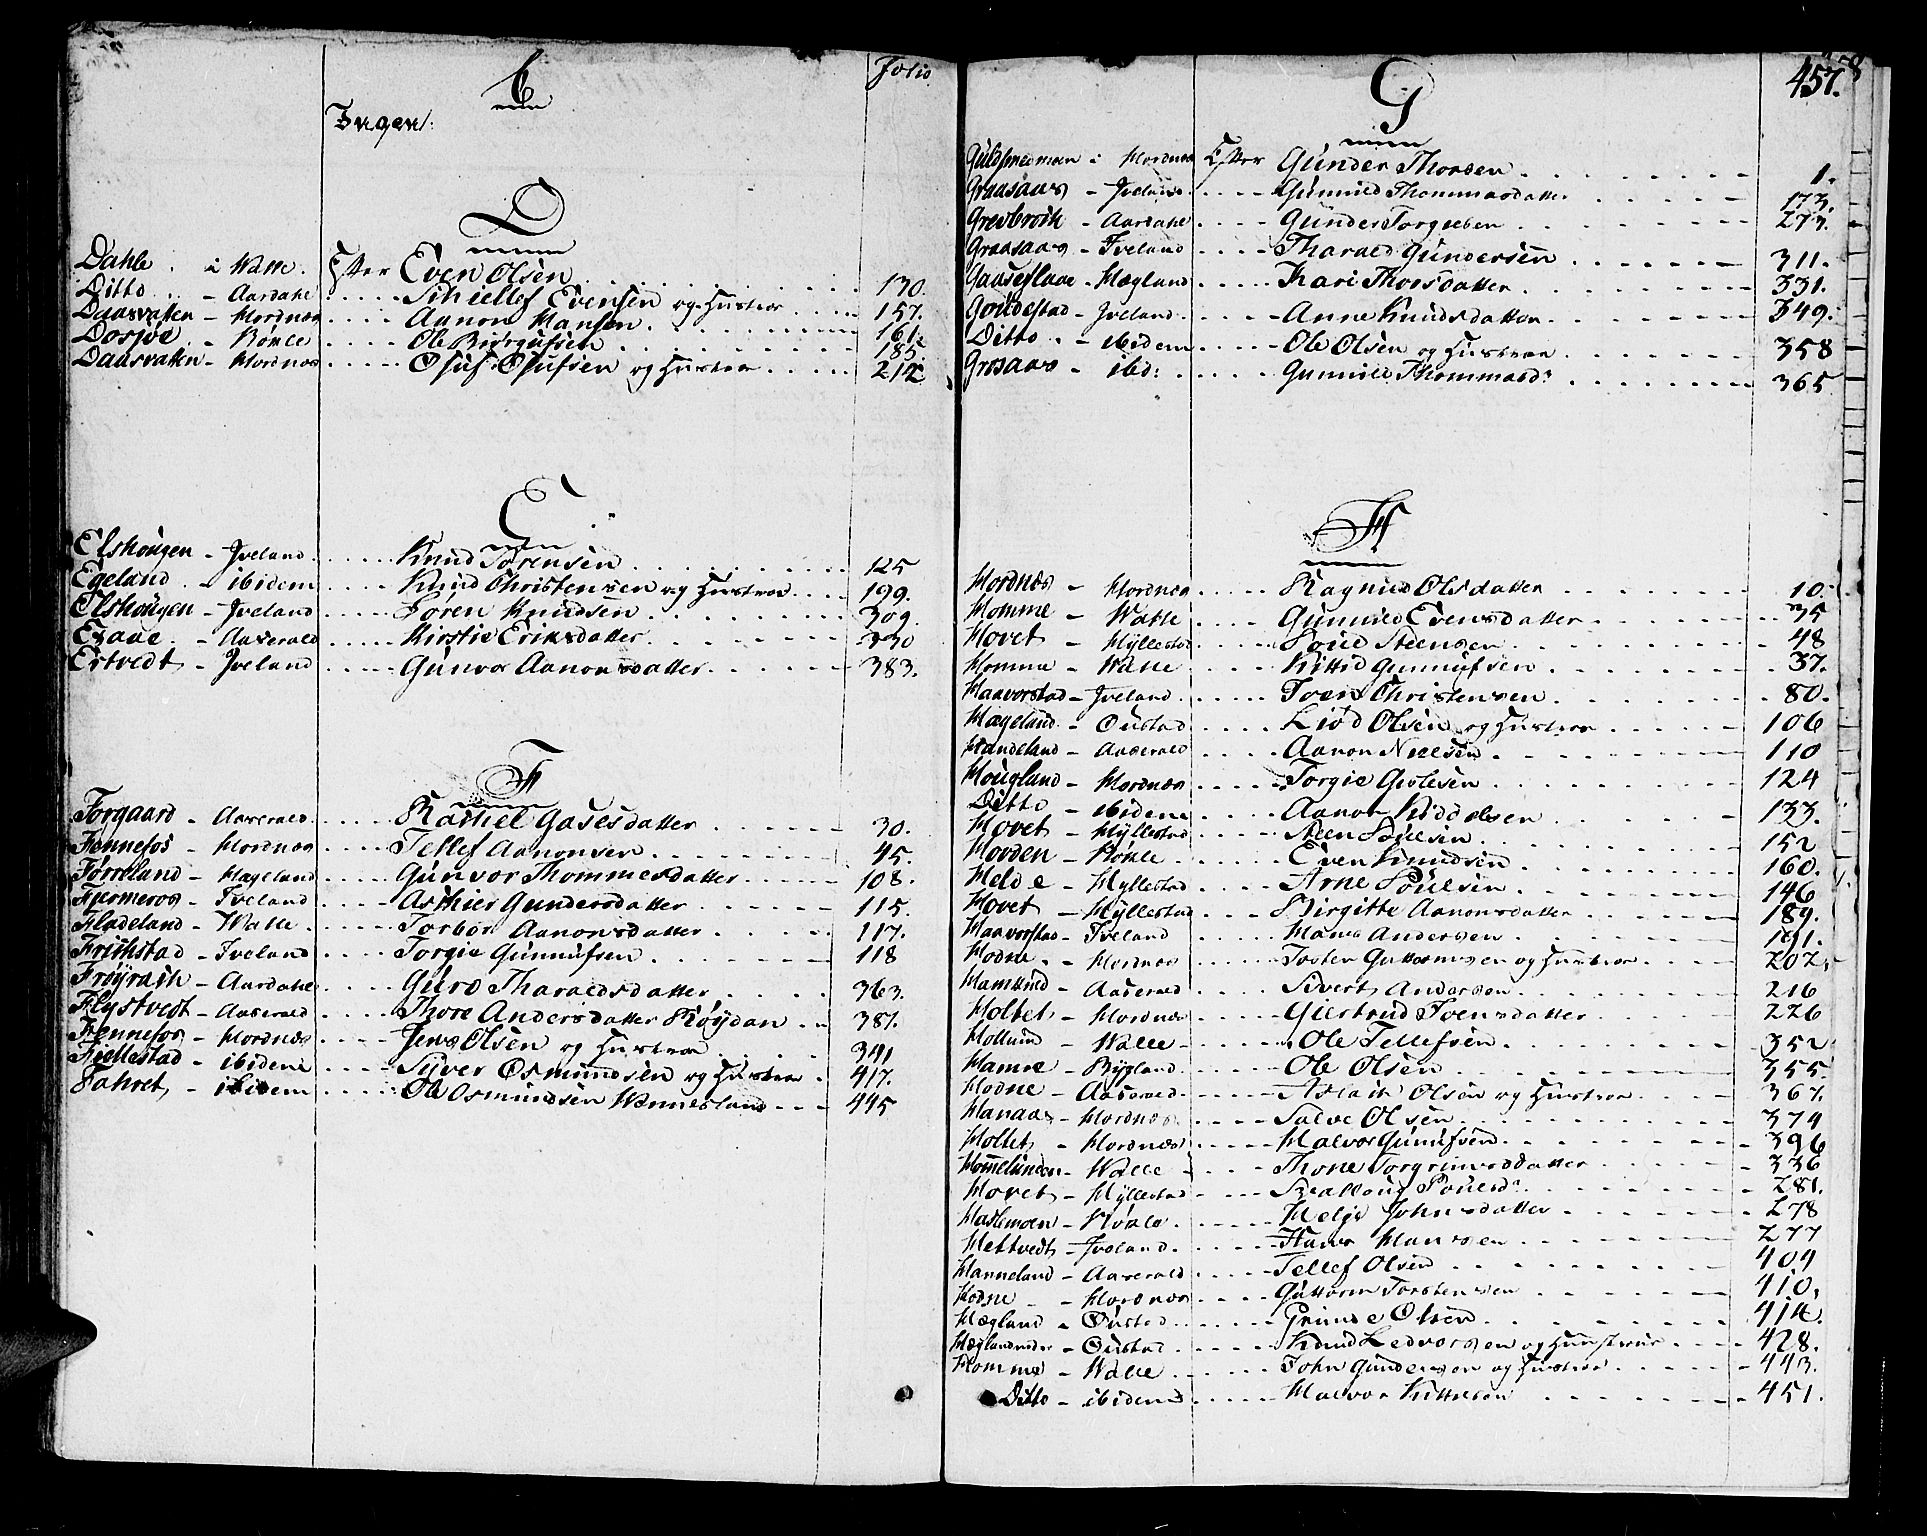 Folio
C
Ingen.
D
Dahle . i Walle . Efter Even Olsen 130.
Ditto . - Aardahl Schiellef Evensen og Hustroe 157.
Daasvatten - Hordnæs Aanon Hansen 161.
Dosjøe - Bøkle Ole Birgufsen 185.
Daasvatten - Hordnæs Osuf Osufsen og Hustroe 212
E
Elshougen - Iveland Knud Sørensen 125
Egeland - ibidem Knud Christensen og Hustroe 199.
Elshougen - Iveland Søren Knudsen 309.
- Aaserald Kirstie Eriksdatter 330
Ertvedt - Iveland Gunvor Aanonsdatter 383.
F
Forgaard - Aaserald Rachel Gasesdatter 30.
Fennefos - Hordnæs Tellef Aanonsen 45.
Førreland - Hægeland Gunvor Thommesdatter 108.
Fjermeros - Iveland Gundersdatter 115.
Fladeland - Walle Torbor Aanonsdatter 117.
Frichstad - Iveland Torgie Gunnufsen 118
Frøyraak - Aardahl Guro Tharaldsdatter 363.
Flystvedt - Aaserald Thore Andersdatter Røydan 387.
Fennefos - Hordnæs Jens Olsen og Hustroe 391
Fiellestad - ibidem Siver Osmundsen og Hustroe 417.
- ibidem Ole Osmundsen Wennesland 445
457.
G
Guldsmedmoen i Hordnæs Efter Gunder Thorsen 1.
Graasaas - Iveland Gunnild Thommasdatter 173.
Grevbrock - Aardahl Gunder Torgulsen 273.
Graasaas - Iveland Tharald Gundersen 311.
Gaaseflaae - Hægland Kari Thorsdatter 331.
Goudestad - Iveland Anne Knudsdatter 349.
Ditto . - ibidem Ole Olsen og Hustroe 358
Grosaas - ibid: Gunnild Thommasd: 365
H
Hordnæs - Hordnæs Ragnild Olsdatter 10.
Homme - Walle Gunnild Evensdatter 35
Hovet - Hyllestad Steensen 48
Homme - Walle Kittil Gunnufsen 37.
Haavorstad - Iveland Joen Christensen 80.
Hægeland - Oustad Liød Olsen og Hustroe 106
Handeland - Aaserald Aanon Nielsen 110
Hougland - Hordnæs Torgie Giølesen 124
Ditto - ibidem Aanon 133.
Hovet - Hyllestad Steen 152
Horden - Bøkle Even Knudsen 160.
Helde - Hyllestad Arne 146
Hovet - Hyllestad Birgitte Aanonsdatter 189.
Haavorstad - Iveland Hans Andersen 191.
Hodne . - Hordnæs Tosten Guttormsen og Hustroe 202.
Hamkild - Aaserald Sivert Andersen 216
Holtet - Hordnæs Giertrud Joensdatter 226
- Walle Ole Tellefsen 352
Hamre - Bygland Ole Olsen 355
Hodne - Aaserald Aslach Olsen og Hustroe 367.
Hanaas - Hordnæs Salve Olsen 374
Holtet - Hordnæs Halvor Gunufsen 396
Hommelunden - Walle Thone Torgrimsdatter 336
Hovet - Hyllestad 281.
Haslemoen - Bøkle Helje Johnsdatter 278
Hettvedt - Iveland Hans Hansen 277
Hanneland - Aaserald Tellef Olsen 404
Hodne - Hordnæs Guttorm Torstensen 410.
Hægland - Oustad Grunde Olsen 414.
Hæglandseder - Oustad Knud Ledvorsen og Hustroe 428.
Homme - Walle John Gundersen og Hustroe 443.
Ditto - ibidem Halvor Kittelsen 451.